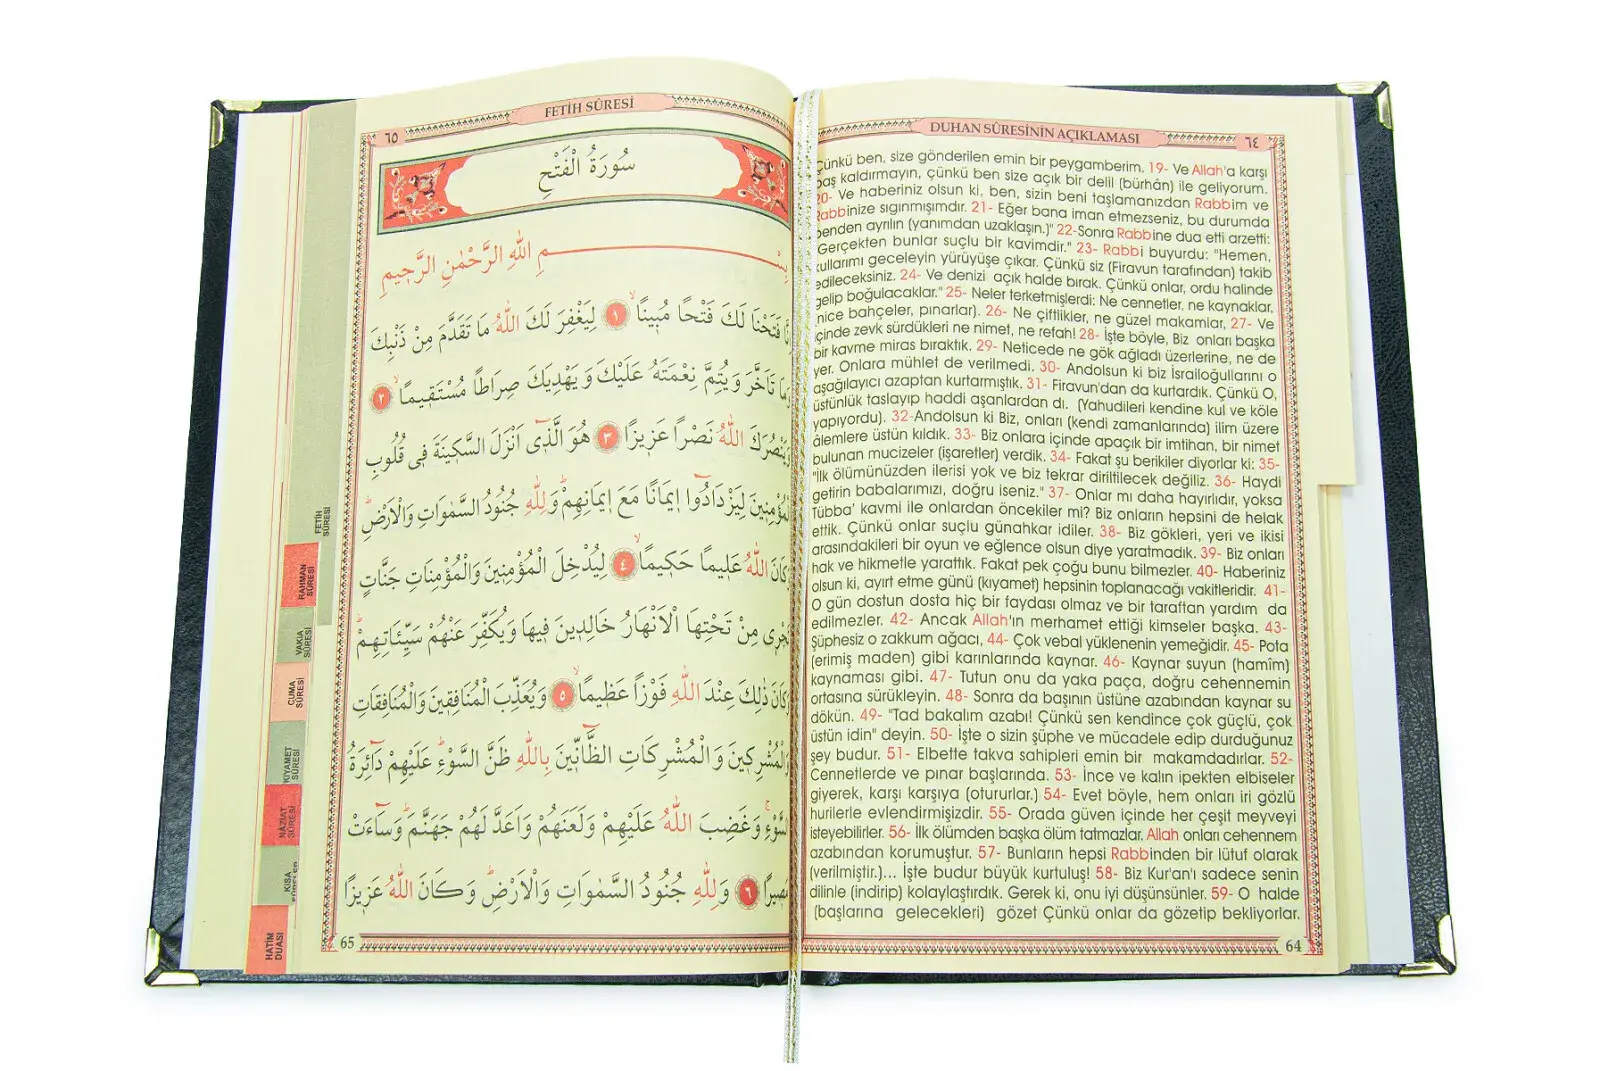 DUHAN SÛRESİNİN AÇIKLAMASI
٦٤
Çünkü ben, size gönderilen emin bir peygamberim. 19- Ve Allah'a karşı
baş kaldırmayın, çünkü ben size açık bir delil (bürhân) ile geliyorum.
20- Ve haberiniz olsun ki, ben, sizin beni taşlamanızdan Rabbim ve
Rabbinize sığınmışımdır. 21- Eğer bana iman etmezseniz, bu durumda
benden ayrılın (yanımdan uzaklaşın.)" 22-Sonra Rabbine dua etti arzetti:
"Gerçekten bunlar suçlu bir kavimdir." 23- Rabbi buyurdu: "Hemen,
kullarımı geceleyin yürüyüşe çıkar. Çünkü siz (Firavun tarafından) takib
edileceksiniz. 24- Ve denizi açık halde bırak. Çünkü onlar, ordu halinde
gelip boğulacaklar." 25- Neler terketmişlerdi: Ne cennetler, ne kaynaklar,
nice bahçeler, pınarlar). 26- Ne çiftlikler, ne güzel makamlar, 27- Ve
içinde zevk sürdükleri ne nimet, ne refah! 28- İşte böyle, Biz onları başka
bir kavme miras bıraktık. 29- Neticede ne gök ağladı üzerlerine, ne de
yer. Onlara mühlet de verilmedi. 30- Andolsun ki biz İsrailoğullarını o
aşağılayıcı azaptan kurtarmıştık. 31- Firavun'dan da kurtardık. Çünkü O,
üstünlük taslayıp haddi aşanlardan dı. (Yahudileri kendine kul ve köle
yapıyordu). 32-Andolsun ki Biz, onları (kendi zamanlarında) ilim üzere
âlemlere üstün kıldık. 33- Biz onlara içinde apaçık bir imtihan, bir nimet
bulunan mucizeler (işaretler) verdik. 34- Fakat şu berikiler diyorlar ki: 35-
"İlk ölümünüzden ilerisi yok ve biz tekrar diriltilecek değiliz. 36- Haydi
getirin babalarımızı, doğru iseniz." 37- Onlar mı daha hayırlıdır, yoksa
Tübba' kavmi ile onlardan öncekiler mi? Biz onların hepsini de helak
ettik. Çünkü onlar suçlu günahkar idiler. 38- Biz gökleri, yeri ve ikisi
arasındakileri bir oyun ve eğlence olsun diye yaratmadık. 39- Biz onları
hak ve hikmetle yarattık. Fakat pek çoğu bunu bilmezler. 40- Haberiniz
olsun ki, ayırt etme günü (kıyamet) hepsinin toplanacağı vakitleridir. 41-
O gün dostun dosta hiç bir faydası olmaz ve bir taraftan yardım da
edilmezler. 42- Ancak Allah'ın merhamet ettiği kimseler başka. 43-
Şüphesiz o zakkum ağacı, 44- Çok vebal yüklenenin yemeğidir. 45- Pota
(erimiş maden) gibi karınlarında kaynar. 46- Kaynar suyun (hamîm)
kaynaması gibi. 47- Tutun onu da yaka paça, doğru cehennemin
ortasına sürükleyin. 48- Sonra da başının üstüne azabından kaynar su
dökün. 49- "Tad bakalım azabı! Çünkü sen kendince çok güçlü, çok
üstün idin" deyin. 50- İşte o sizin şüphe ve mücadele edip durduğunuz
şey budur. 51- Elbette takva sahipleri emin bir makamdadırlar. 52-
Cennetlerde ve pınar başlarında. 53- İnce ve kalın ipekten elbiseler
giyerek, karşı karşıya (otururlar.) 54- Evet böyle, hem onları iri gözlü
hurilerle evlendirmişizdir. 55- Orada güven içinde her çeşit meyveyi
isteyebilirler. 56- İlk ölümden başka ölüm tatmazlar. Allah onları cehennem
azabından korumuştur. 57- Bunların hepsi Rabbinden bir lütuf olarak
(verilmiştir.)... İşte budur büyük kurtuluş! 58- Biz Kur'an'ı sadece senin
dilinle (indirip) kolaylaştırdık. Gerek ki, onu iyi düşünsünler. 59- O halde
(başlarına gelecekleri) gözet Çünkü onlar da gözetip bekliyorlar.
64
FETİH SÛRESİ
٦٥
سُورَةُ الْفَتْحِ
بِسْمِ اللهِ الرَّحْمٰنِ الرَّحِيمِ
فَتَحْنَا لَكَ فَتْحًا مُبِينًا ١ لِيَغْفِرَ لَكَ اللهُ مَا تَقَدَّمَ مِنْ ذَنْبِكَ
وَمَا تَاَخَّرَ وَيُتِمَّ نِعْمَتَهُ عَلَيْكَ وَيَهْدِيَكَ صِرَاطًا مُسْتَقِيمًا ٢
وَيَنْصُرَكَ اللهُ نَصْرًا عَزِيزًا ٣ هُوَ الَّذِى اَنْزَلَ السَّكِينَةَ فِى قُلُوبِ
الْمُؤْمِنِينَ لِيَزْدَادُوا اِيمَانًا مَعَ اِيمَانِهِمْ وَلِلّٰهِ جُنُودُ السَّمٰوَاتِ وَالْاَرْضِ
وَكَانَ اللهُ عَلِيمًا حَكِيمًا ٤ لِيُدْخِلَ الْمُؤْمِنِينَ وَالْمُؤْمِنَاتِ جَنَّاتٍ
تَجْرِى مِنْ تَحْتِهَا الْاَنْهَارُ خَالِدِينَ فِيهَا وَيُكَفِّرَ عَنْهُمْ سَيِّئَاتِهِمْ
وَكَانَ ذٰلِكَ عِنْدَ اللهِ فَوْزًا عَظِيمًا ٥ وَيُعَذِّبَ الْمُنَافِقِينَ وَالْمُنَافِقَاتِ
وَالْمُشْرِكِينَ وَالْمُشْرِكَاتِ الظَّانِّينَ بِاللهِ ظَنَّ السَّوْءِ عَلَيْهِمْ دَائِرَةُ
السَّوْءِ وَغَضِبَ اللهُ عَلَيْهِمْ وَلَعَنَهُمْ وَاَعَدَّ لَهُمْ جَهَنَّمَ وَسَاءَتْ
مَصِيرًا ٦ وَلِلّٰهِ جُنُودُ السَّمٰوَاتِ وَالْاَرْضِ وَكَانَ اللهُ عَزِيزًا
65
FETİH
SÛRESİ
RAHMAN
SÛRESİ
VAKIA
SÛRESİ
CUMA
SÛRESİ
KIYAMET
SÛRESİ
NAZİAT
SÛRESİ
KISA
HATİM
DUASI